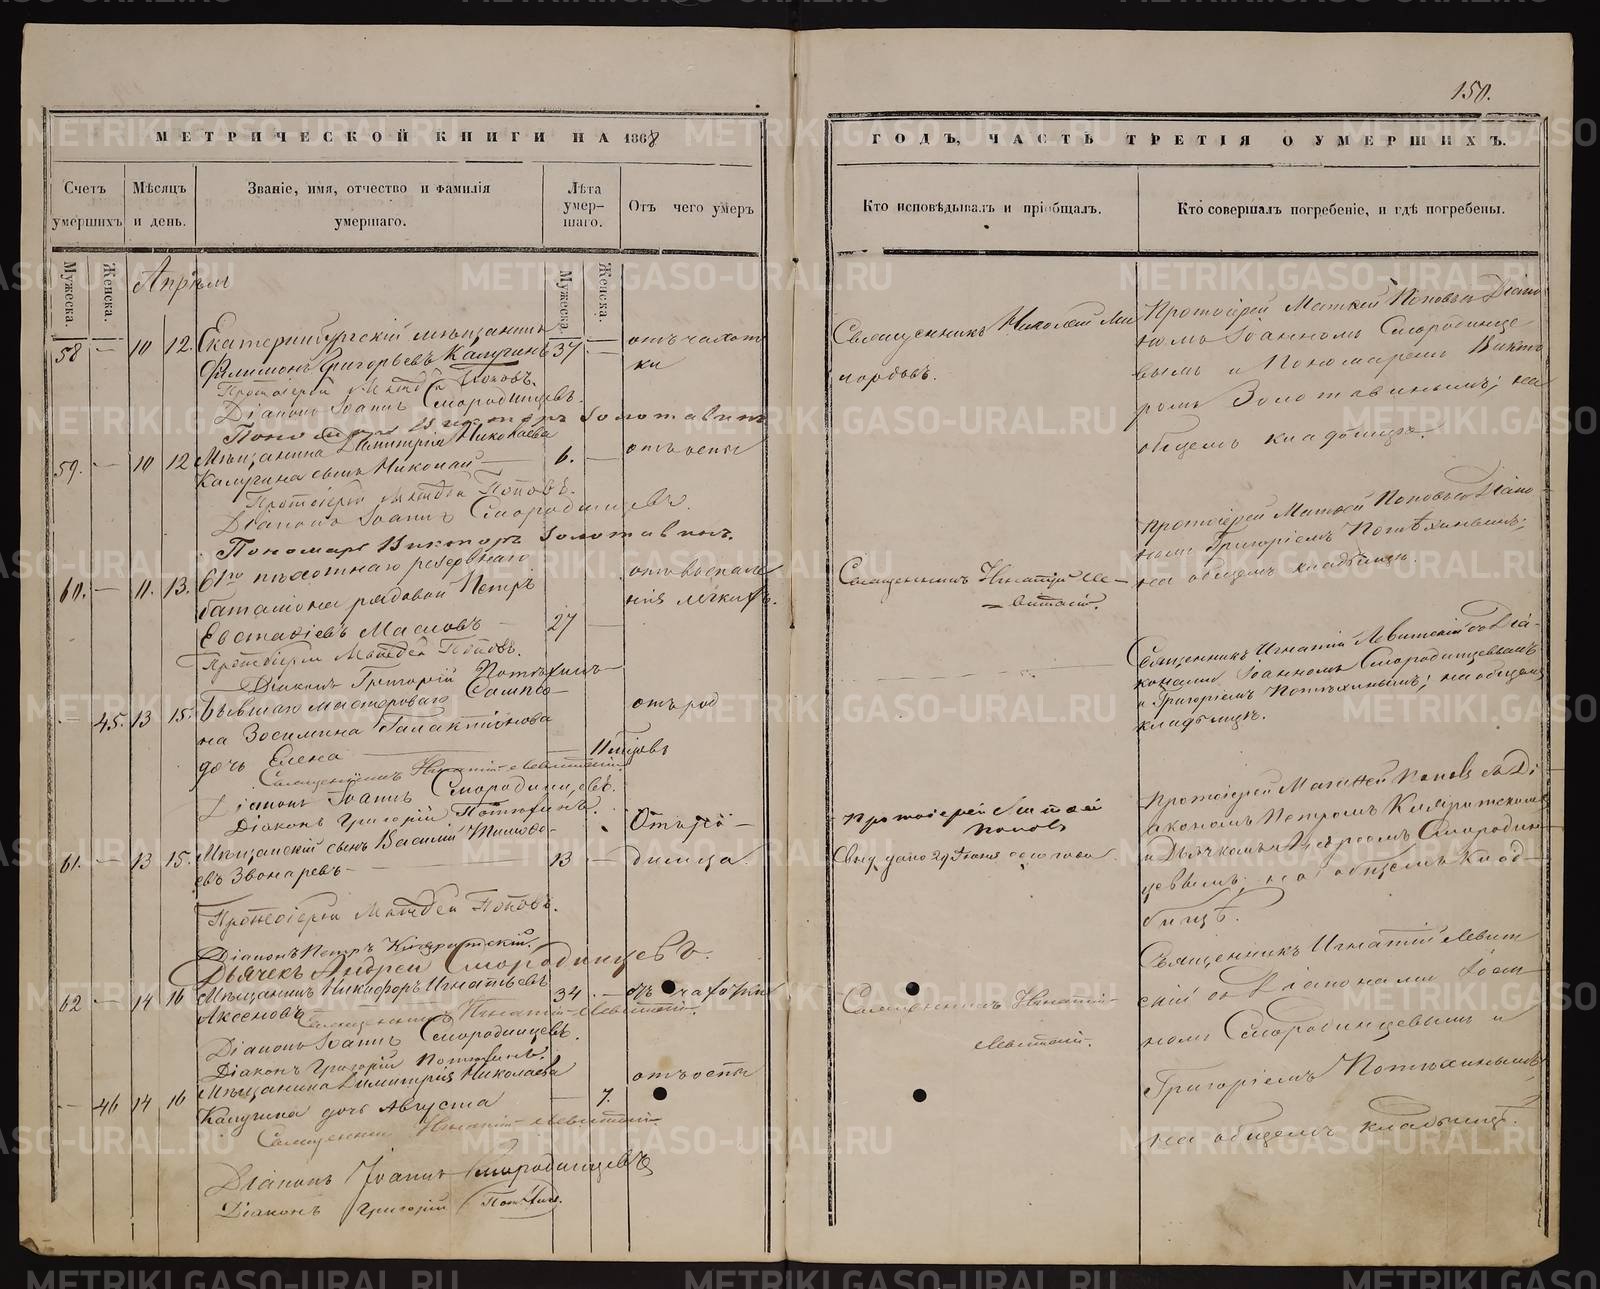 150.
МЕТРИЧЕСКОЙ КНИГИ НА 1868
ГОДЪ, ЧАСТЬ ТРЕТІЯ О УМЕРШИХЪ.
Счетъ умершихъ
Мѣсяцъ и день.
Званіе, имя, отчество и фамилія умершаго.
Лѣта умер-шаго.
Отъ чего умеръ
Кто исповѣдывалъ и пріобщалъ.
Кто совершалъ погребеніе, и гдѣ погребены.
Мужеска.
Женска.
Апрѣль
Мужеска.
Женска.
58 — 10 12. Екатеринбургскій мѣщанинъ
Филимонъ Григорьевъ Калугинъ 37 —
отъ чахот
ки
Священникъ Николай Ми
Протоіерей Матвей Поповъ съ Діако
номъ Іоанномъ Смородинце
вымъ и Пономаремъ Викто
ромъ Золотавинымъ; на
общемъ кладбищѣ.
Протоіерей Матвей Поповъ.
Діаконъ Іоаннъ Смородинцевъ.
Пономарь Викторъ Золотавинъ
59. — 10 12 Мѣщанина Димитрія Николаева
Калугина сынъ Николай — 6. —
отъ оспы
Протоіерей Матвей Поповъ.
Діаконъ Іоаннъ Смородинцевъ.
Пономарь Викторъ Золотавинъ.
60. — 11. 13. 61го пѣхотнаго резервнаго
баталіона рядовой Петръ
Евстафіевъ Масловъ — 27 —
отъ воспале
нія легкихъ.
Священникъ Игнатій Ле-
витскій.
Протоіерей Матвей Поповъ съ Діако-
номъ Григоріемъ Потѣхинымъ;
на общемъ кладбищѣ.
Протоіерей Матвей Поповъ.
Діаконъ Григорій Потѣхинъ
— 45. 13 15. Бывшаго мастероваго
на Зосимина Галактіонова
дочь Елена —
отъ род
Священникъ Игнатій Левитскій съ Діа-
конами Іоанномъ Смородинцевымъ
и Григоріемъ Потѣхинымъ; на общемъ
кладбищѣ.
Священникъ Игнатій Левитскій.
Діаконъ Іоаннъ Смородинцевъ.
Діаконъ Григорій Потѣхинъ.
61. — 13 15. Мѣщанскій сынъ Василій
евъ Звонаревъ — 13 —
Отъ ро-
димца.
Протоіерей Матвей
Поповъ
Протоіерей Матвей Поповъ съ Ді
акономъ Петромъ
и Дьячкомъ Андреемъ Смородин
цевымъ; на общемъ клад-
бищѣ.
Протоіерей Матвей Поповъ.
Діаконъ Петръ
Дьячекъ Андрей Смородинцевъ.
62 — 14 16 Мѣщанинъ Никифоръ Игнатьевъ
Аксеновъ 34. —
отъ чахотки
Священникъ Игнатій
Левитскій.
Священникъ Игнатій Левит
скій съ Діаконами Іоан
номъ Смородинцевымъ и
Григоріемъ Потѣхинымъ,
на общемъ кладбищѣ.
Священникъ Игнатій Левитскій.
Діаконъ Іоаннъ Смородинцевъ.
Діаконъ Григорій Потѣхинъ.
— 46 14 16 Мѣщанина Димитрія Николаева
Калугина дочь Августа — 7.
отъ оспы
Священникъ Игнатій Левитскій
Діаконъ Іоаннъ Смородинцевъ
Діаконъ Григорій Потѣхинъ.
METRIKI.GASO-URAL.RU